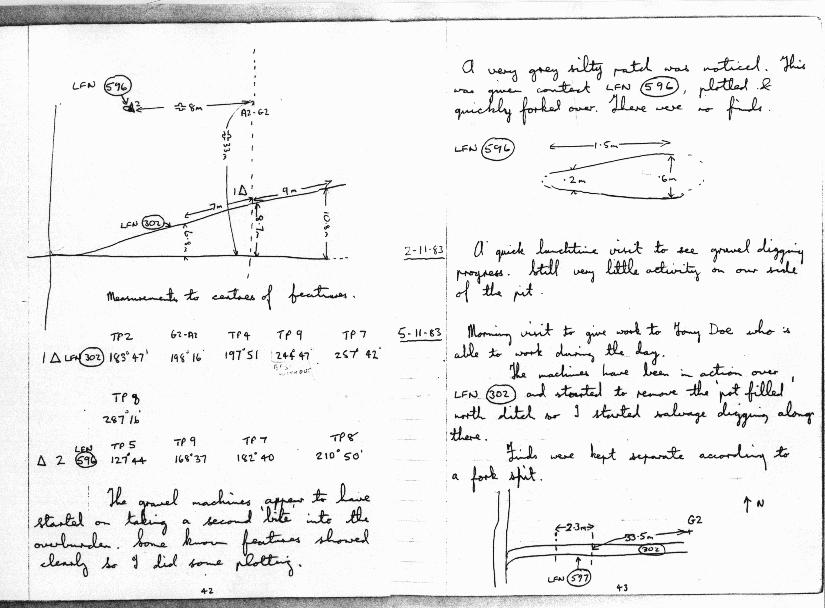 LFN 596
Δ2
÷ 8m
A2-G2
÷ 33m
1Δ
9m
7m
LFN 302
6.8m
8.7m
10.8m
Measurements to centres of features.
TP2 G2-A2 TP4 TP9 TP7
1 Δ LFN 302 183°47' 198°16' 197°51 246°47' 257°42'
TP8
287°16'
LFN TP5 TP9 TP7 TP8
Δ 2 596 127°44 168°37 182°40 210°50'
The gravel machines appear to have
started on taking a second 'bite' into the
overburden. Some known features showed
clearly so I did some plotting.
42
A very grey silty patch was noticed. This
was given context LFN 596, plotted &
quickly forked over. There were no finds.
LFN 596
1.5m
.2m
.6m
2-11-83
A quick lunchtime visit to see gravel digging
progress. Still very little activity on our side
of the pit.
5-11-83
Morning visit to give work to Tony Doe who is
able to work during the day.
The machines have been in action over
LFN 302 and started to remove the 'pot filled'
north ditch so I started salvage digging along
there.
Finds were kept separate according to
a fork spit.
↑ N
G2
2.3m
33.5m
302
LFN 597
43